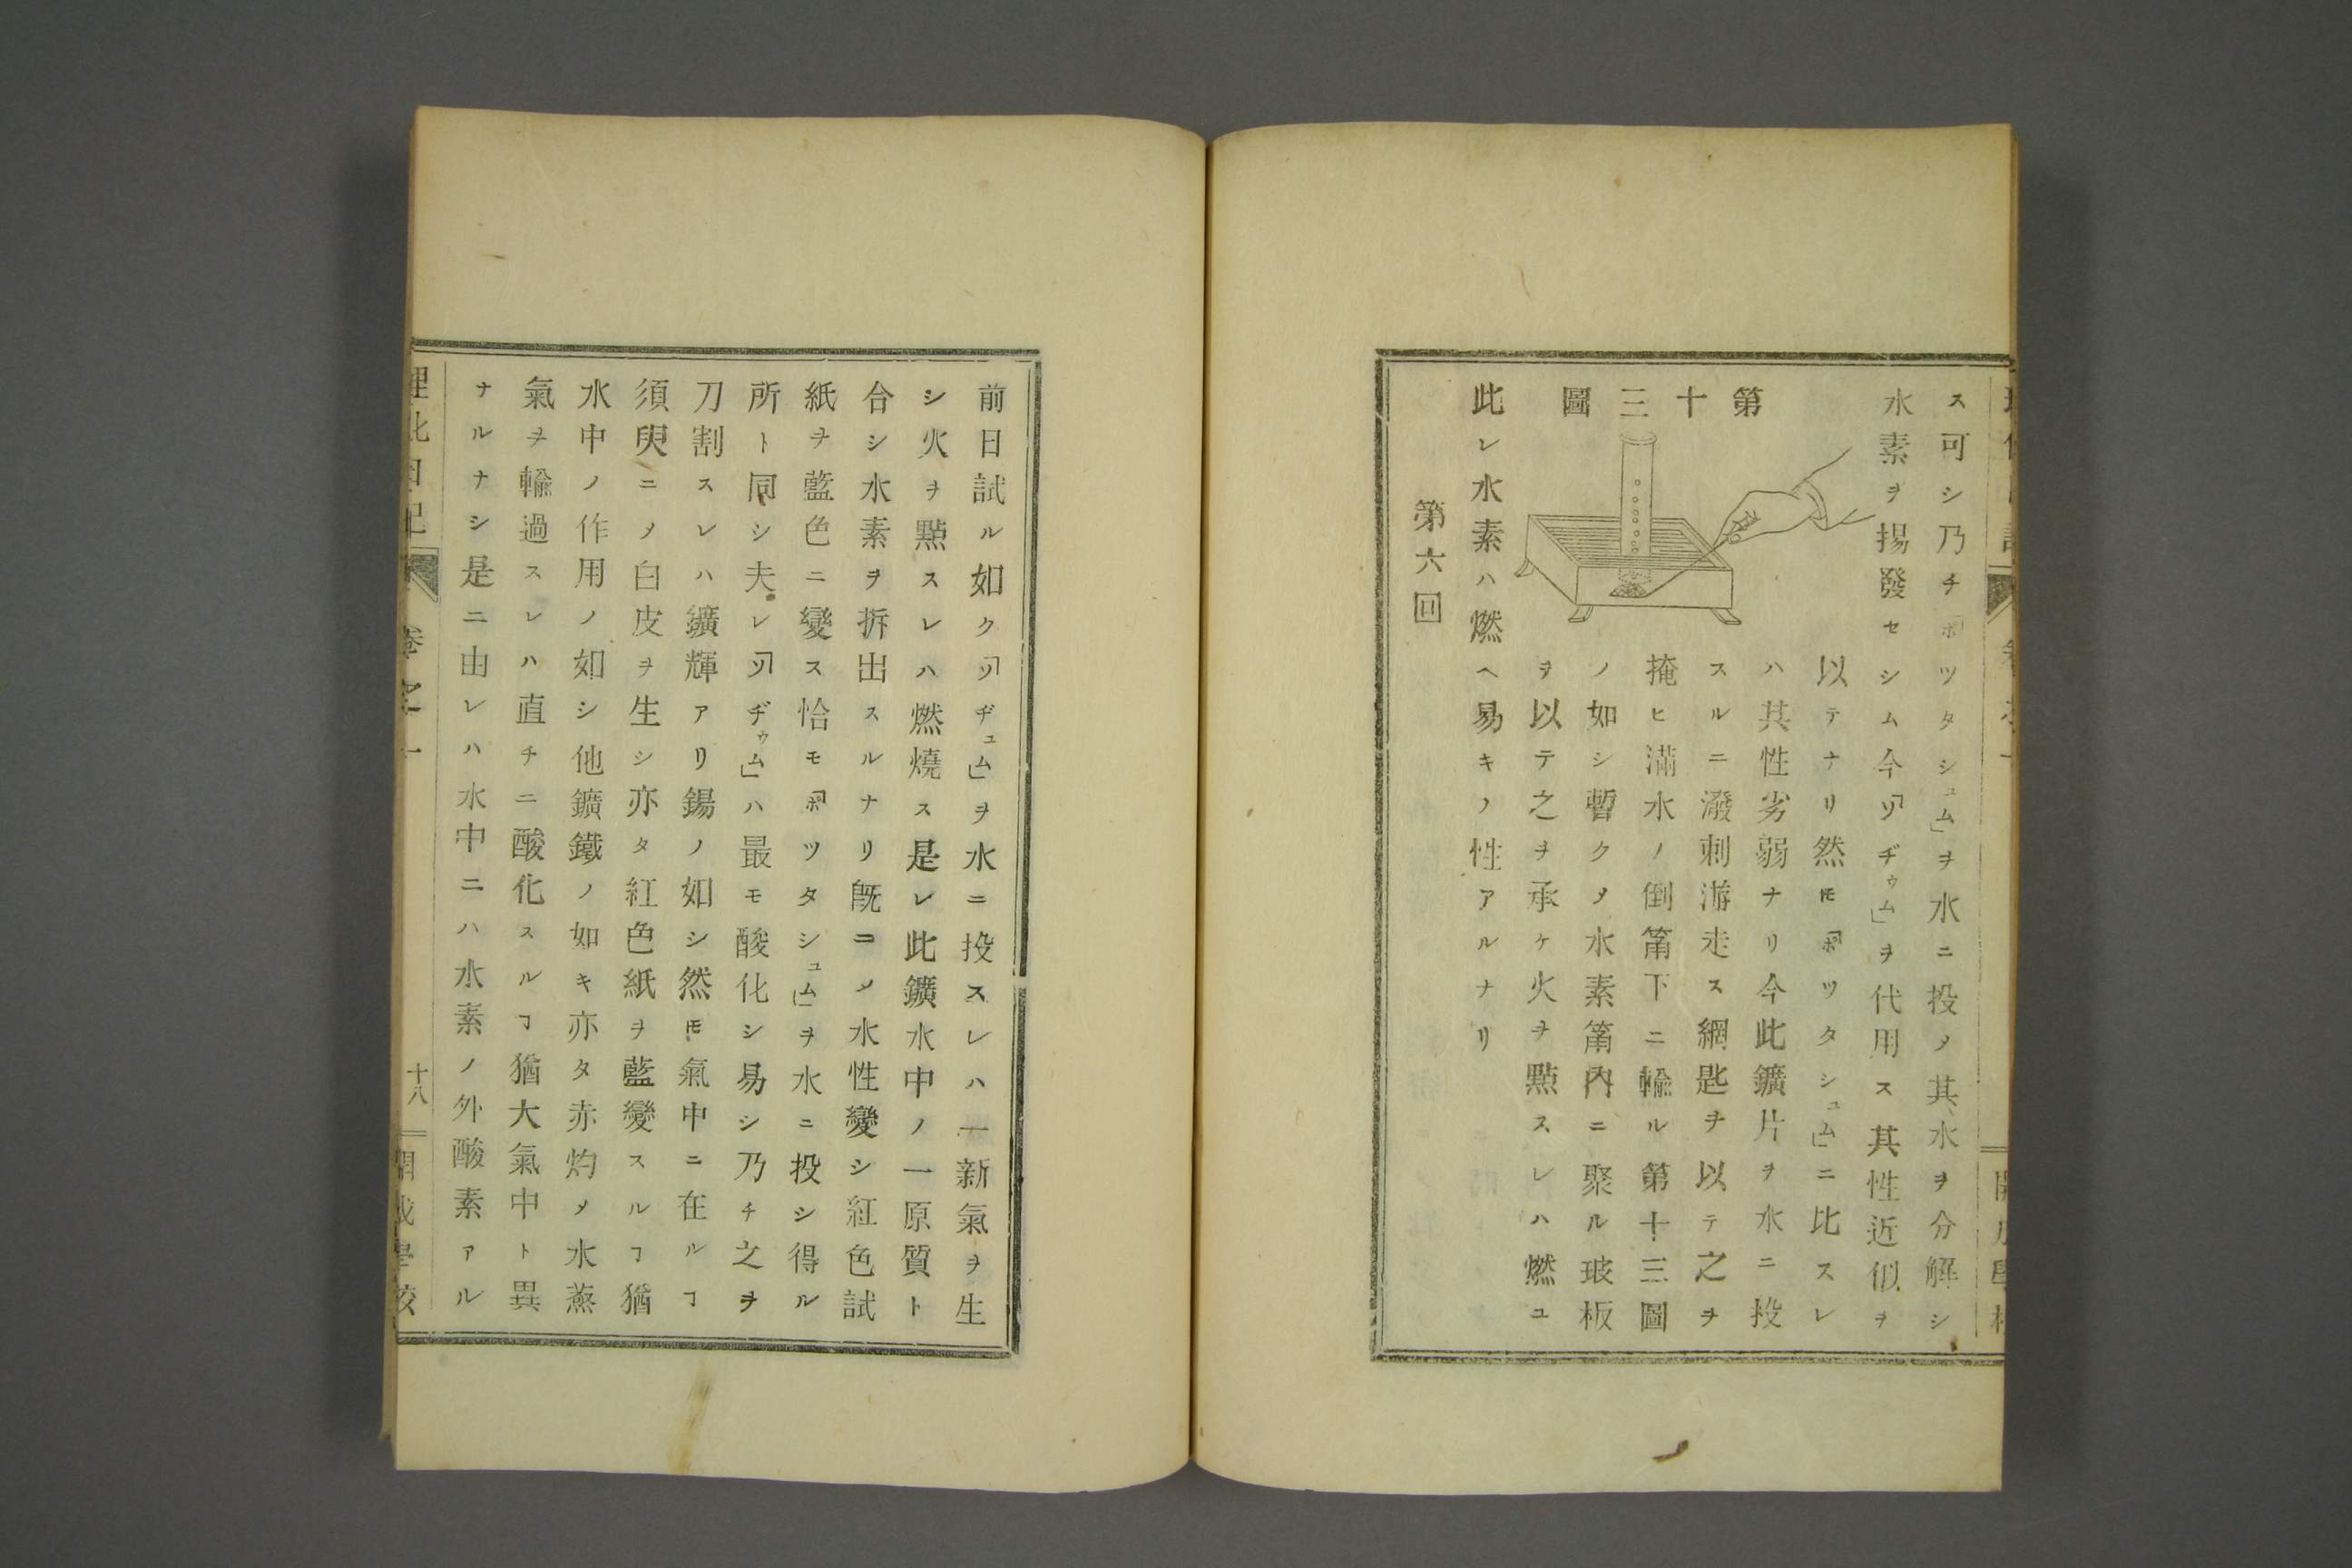 ス可シ乃チ「ポツタシュム」ヲ水ニ投ノ其水ヲ分解シ
水素ヲ揚發セシム今「ソヂゥム」ヲ代用ス其性近似ヲ
第十三圖
以テナリ然𪜈「ポツタシュム」ニ比スレ
ハ其性劣弱ナリ今此鑛片ヲ水ニ投
スルニ潑剌游走ス網匙ヲ以テ之ヲ
掩ヒ滿水ノ倒筩下ニ輸ル第十三圖
ノ如シ暫クノ水素筩內ニ聚ル玻板
ヲ以テ之ヲ承ケ火ヲ點スレハ燃ユ
此レ水素ハ燃ヘ易キノ性アルナリ
第六回
前日試ル如ク「ソヂュム」ヲ水ニ投スレハ一新氣ヲ生
シ火ヲ點スレハ燃燒ス是レ此鑛水中ノ一原質ト
合シ水素ヲ拆出スルナリ既ニノ水性變シ紅色試
紙ヲ藍色ニ變ス恰モ「ポツタシュム」ヲ水ニ投シ得ル
所ト同シ夫レ「ソヂゥム」ハ最モ酸化シ易シ乃チ之ヲ
刀割スレハ鑛輝アリ錫ノ如シ然𪜈氣中ニ在ルヿ
須臾ニノ白皮ヲ生シ亦タ紅色紙ヲ藍變スルヿ猶
水中ノ作用ノ如シ他鑛鐵ノ如キ亦タ赤灼メ水蒸
氣ヲ輸過スレハ直チニ酸化スルヿ猶大氣中ト異
ナルナシ是ニ由レハ水中ニハ水素ノ外酸素アル
理化日記
卷之一
十八
開成學校